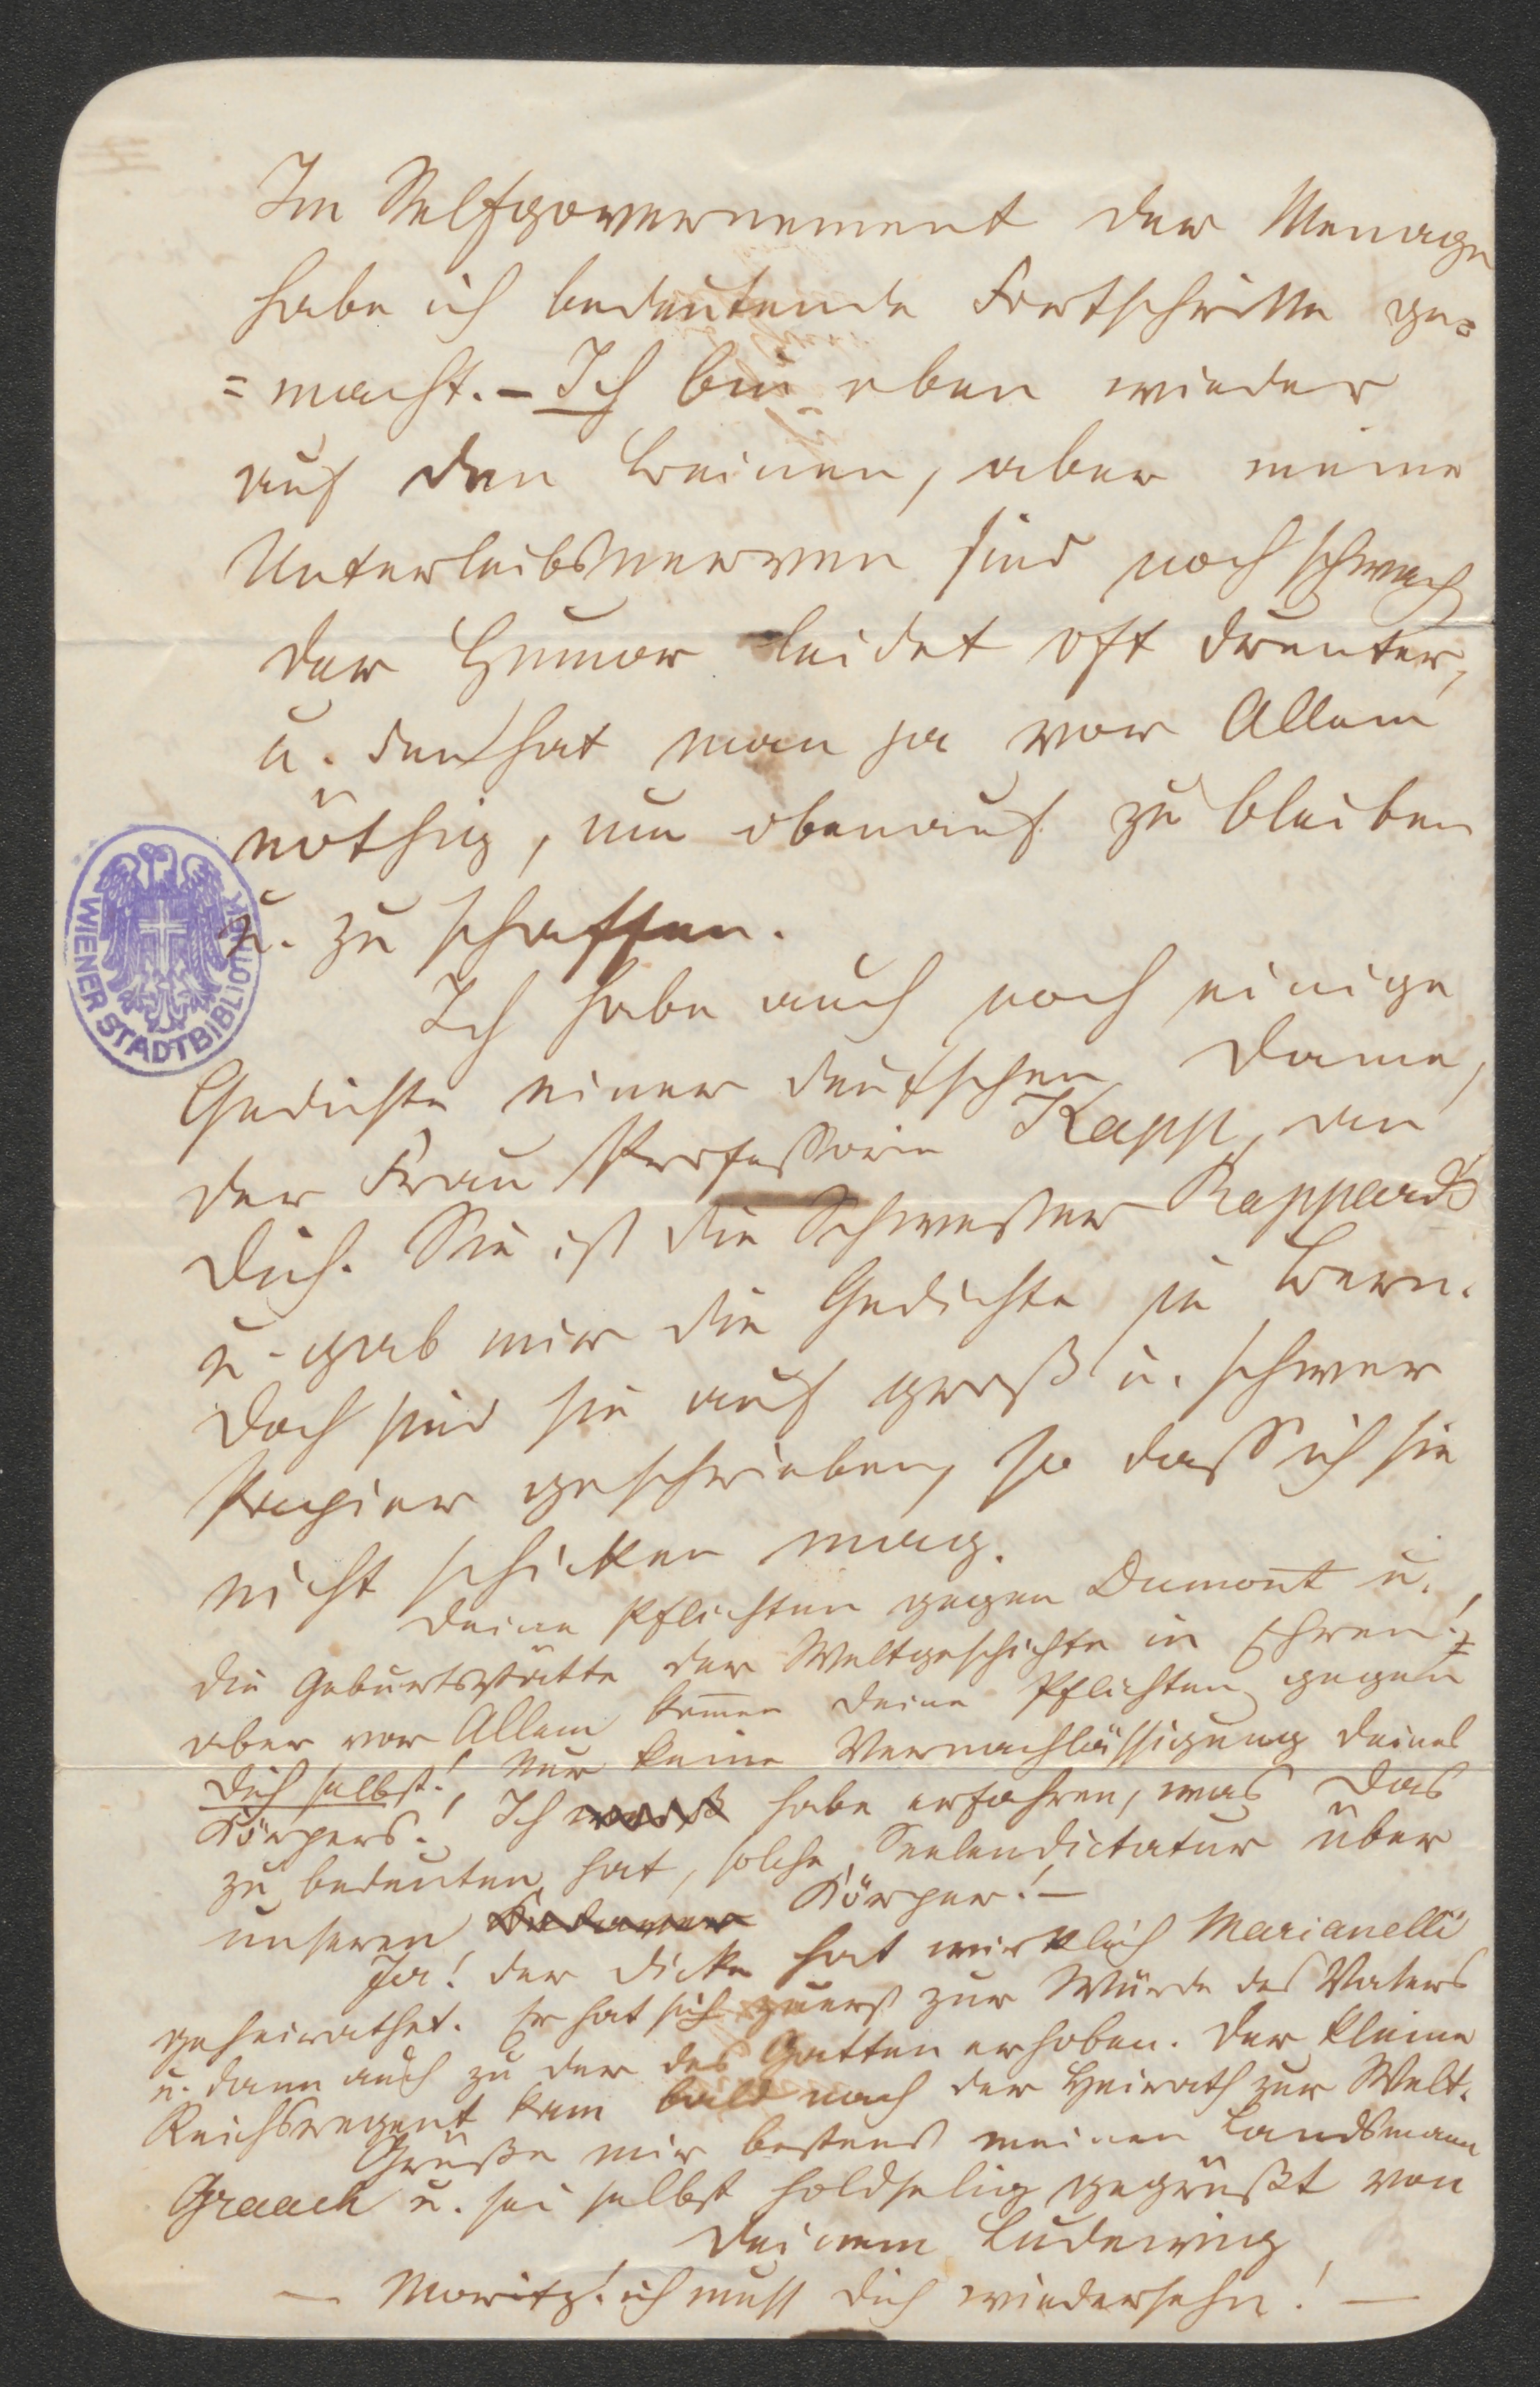 Im Selfgovernement der Menage
habe ich bedeutende Fortschritte ge=
=macht. – Ich bin eben wieder
auf den Beinen, aber meine
Unterleibsnerven sind noch schwach
der Humor leidet oft drunter,
u. den hat man ja vor Allem
nöthig, um obenauf zu bleiben
u. zu schaffen.
Ich habe auch noch einige
Gedichte einer deutschen Dame,
der Frau Professorin Kapp, an
Dich. Sie ist die Schwester Rappards
u. gab mir die Gedichte in Bern.
Doch sind sie auf groß u. schwer
Papier geschrieben, so dass ich sie
nicht schicken mag.
Deine Pflichten gegen Dumont u.
die Geburtsstätte der Weltgeschichte in Ehren!,
aber vor Allem kom̅en Deine Pflichten gegen
Dich selbst!, Nur keine Vernachlässigung Deines
Körpers! Ich weiß habe erfahren, was das
zu bedeuten hat, solche Seelendictatur über
unseren Kadaver Körper! –
Ja! der Dicke hat wirklich Marianelli
geheirathet. Er hat sich zuerst zur Würde des Vaters
u. dann auch zu der des Gatten erhoben. Der kleine
Reichsregent kam bald nach der Heirath zur Welt.
Grüße mir bestens meinen Landsmann
Graach u. sei selbst holdselig gegrüßt von
Deinem Ludewig
– Moritz! ich muss Dich wiedersehn! –
WIENER STADTBIBLIOTHEK